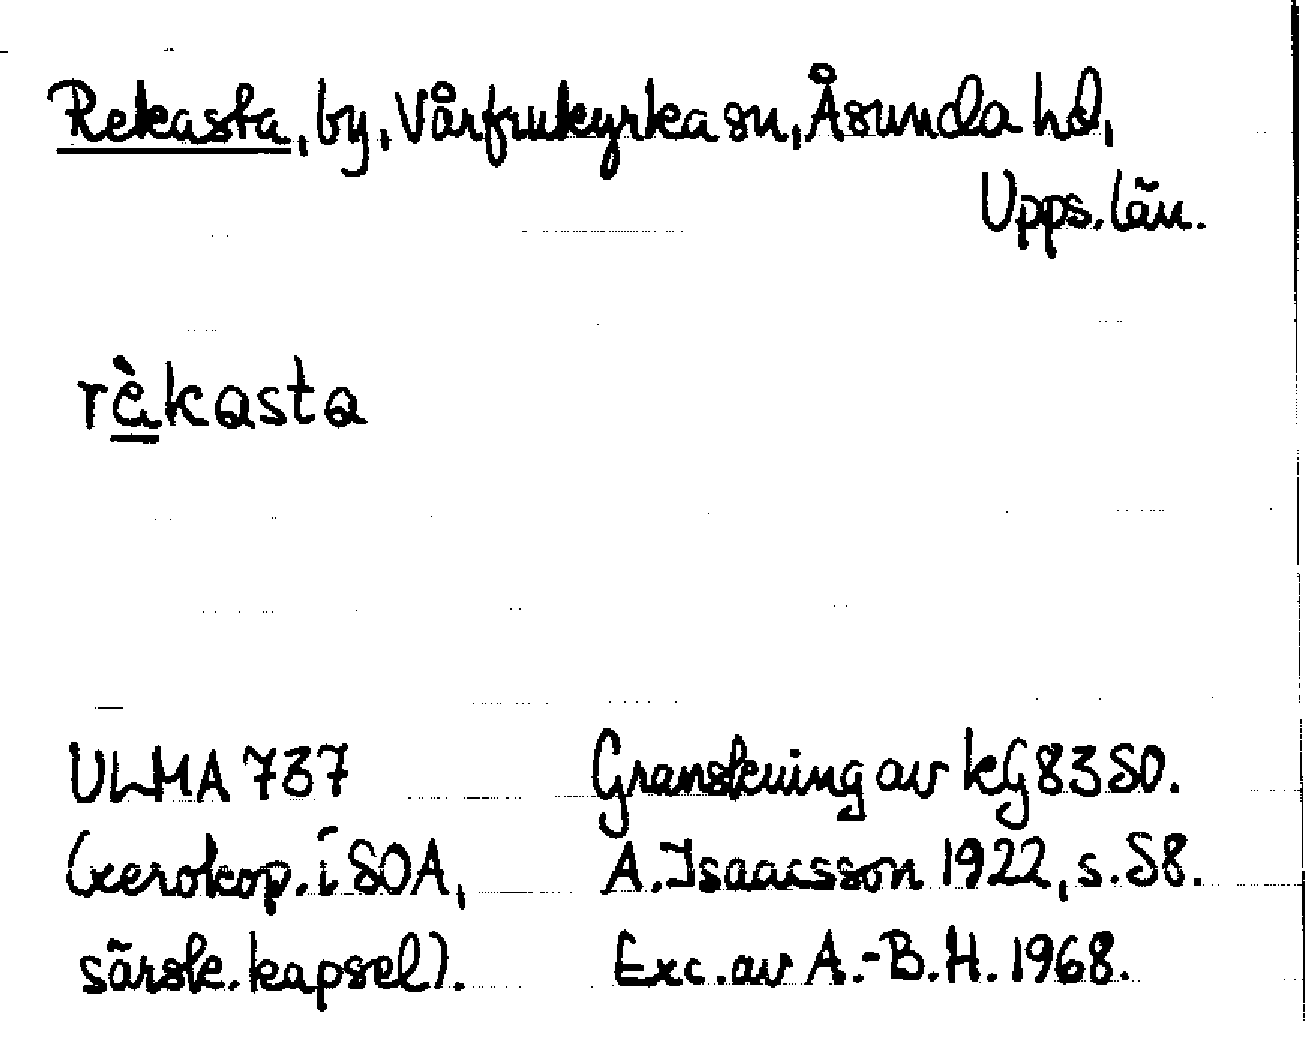 Rekasta, by, Vårfrukyrka sn, Åsunda hd,
Upps. län.
rèkasta
ULMA 737 Granskning av kG 8350.
(xerokop. i SOA, A. Isaacsson 1922, s. 58.
särsk. kapsel). Exc. av A.-B.H. 1968.